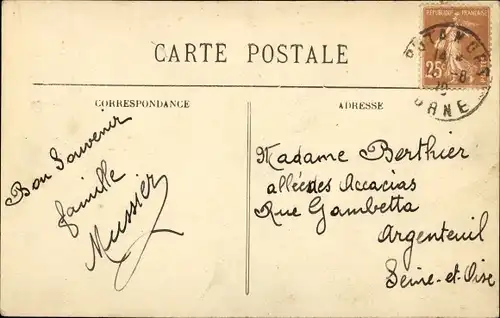 RÉPUBLIQUE FRANÇAISE
25c
ORNE
CARTE POSTALE
CORRESPONDANCE
ADRESSE
Bon Souvenir
famille
Mussier
Madame Berthier
allée des Accacias
Rue Gambetta
Argenteuil
Seine-et-Oise